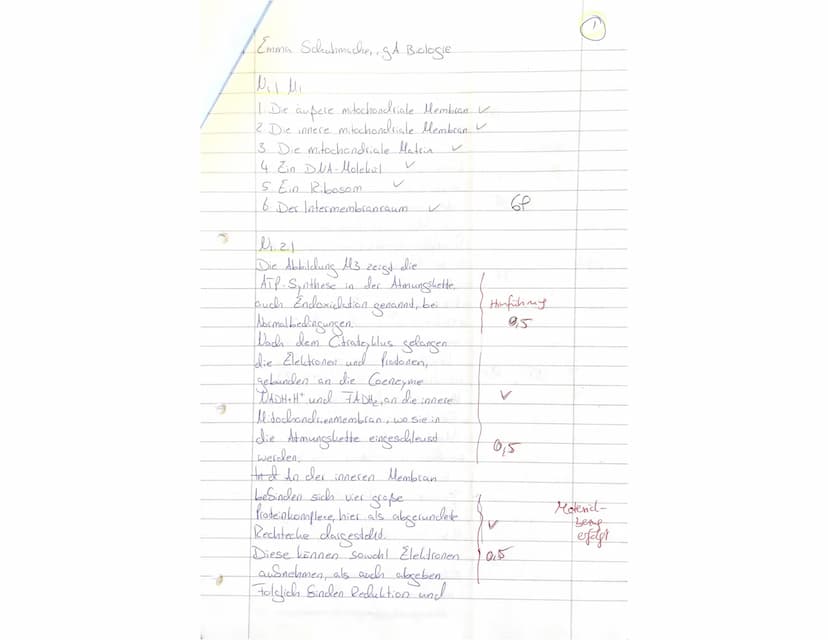 1
Emma Schuhmacher, gA Biologie
Nr. 1 M1
1. Die äußere mitochondriale Membran ✓
2. Die innere mitochondriale Membran ✓
3. Die mitochondriale Matrix ✓
4. Ein DNA-Molekül ✓
5. Ein Ribosom ✓
6. Der Intermembranraum ✓
6P
Nr. 2.1
Die Abbildung M3 zeigt die
ATP-Synthese in der Atmungskette,
auch Endoxidation genannt, bei
Normalbedingungen.
Hinführung
0,5
Nach dem Citratzyklus gelangen
die Elektronen und Protonen,
gebunden an die Coenzyme
NADH+H⁺ und FADH₂, an die innere
Mitochondrienmembran, wo sie in
die Atmungskette eingeschleust
werden.
✓
0,5
An der inneren Membran
befinden sich vier große
Proteinkomplexe, hier als abgerundete
Rechtecke dargestellt.
✓
Material-
bezug
erfolgt
Diese können sowohl Elektronen
aufnehmen, als auch abgeben.
0,5
Folglich finden Reduktion und